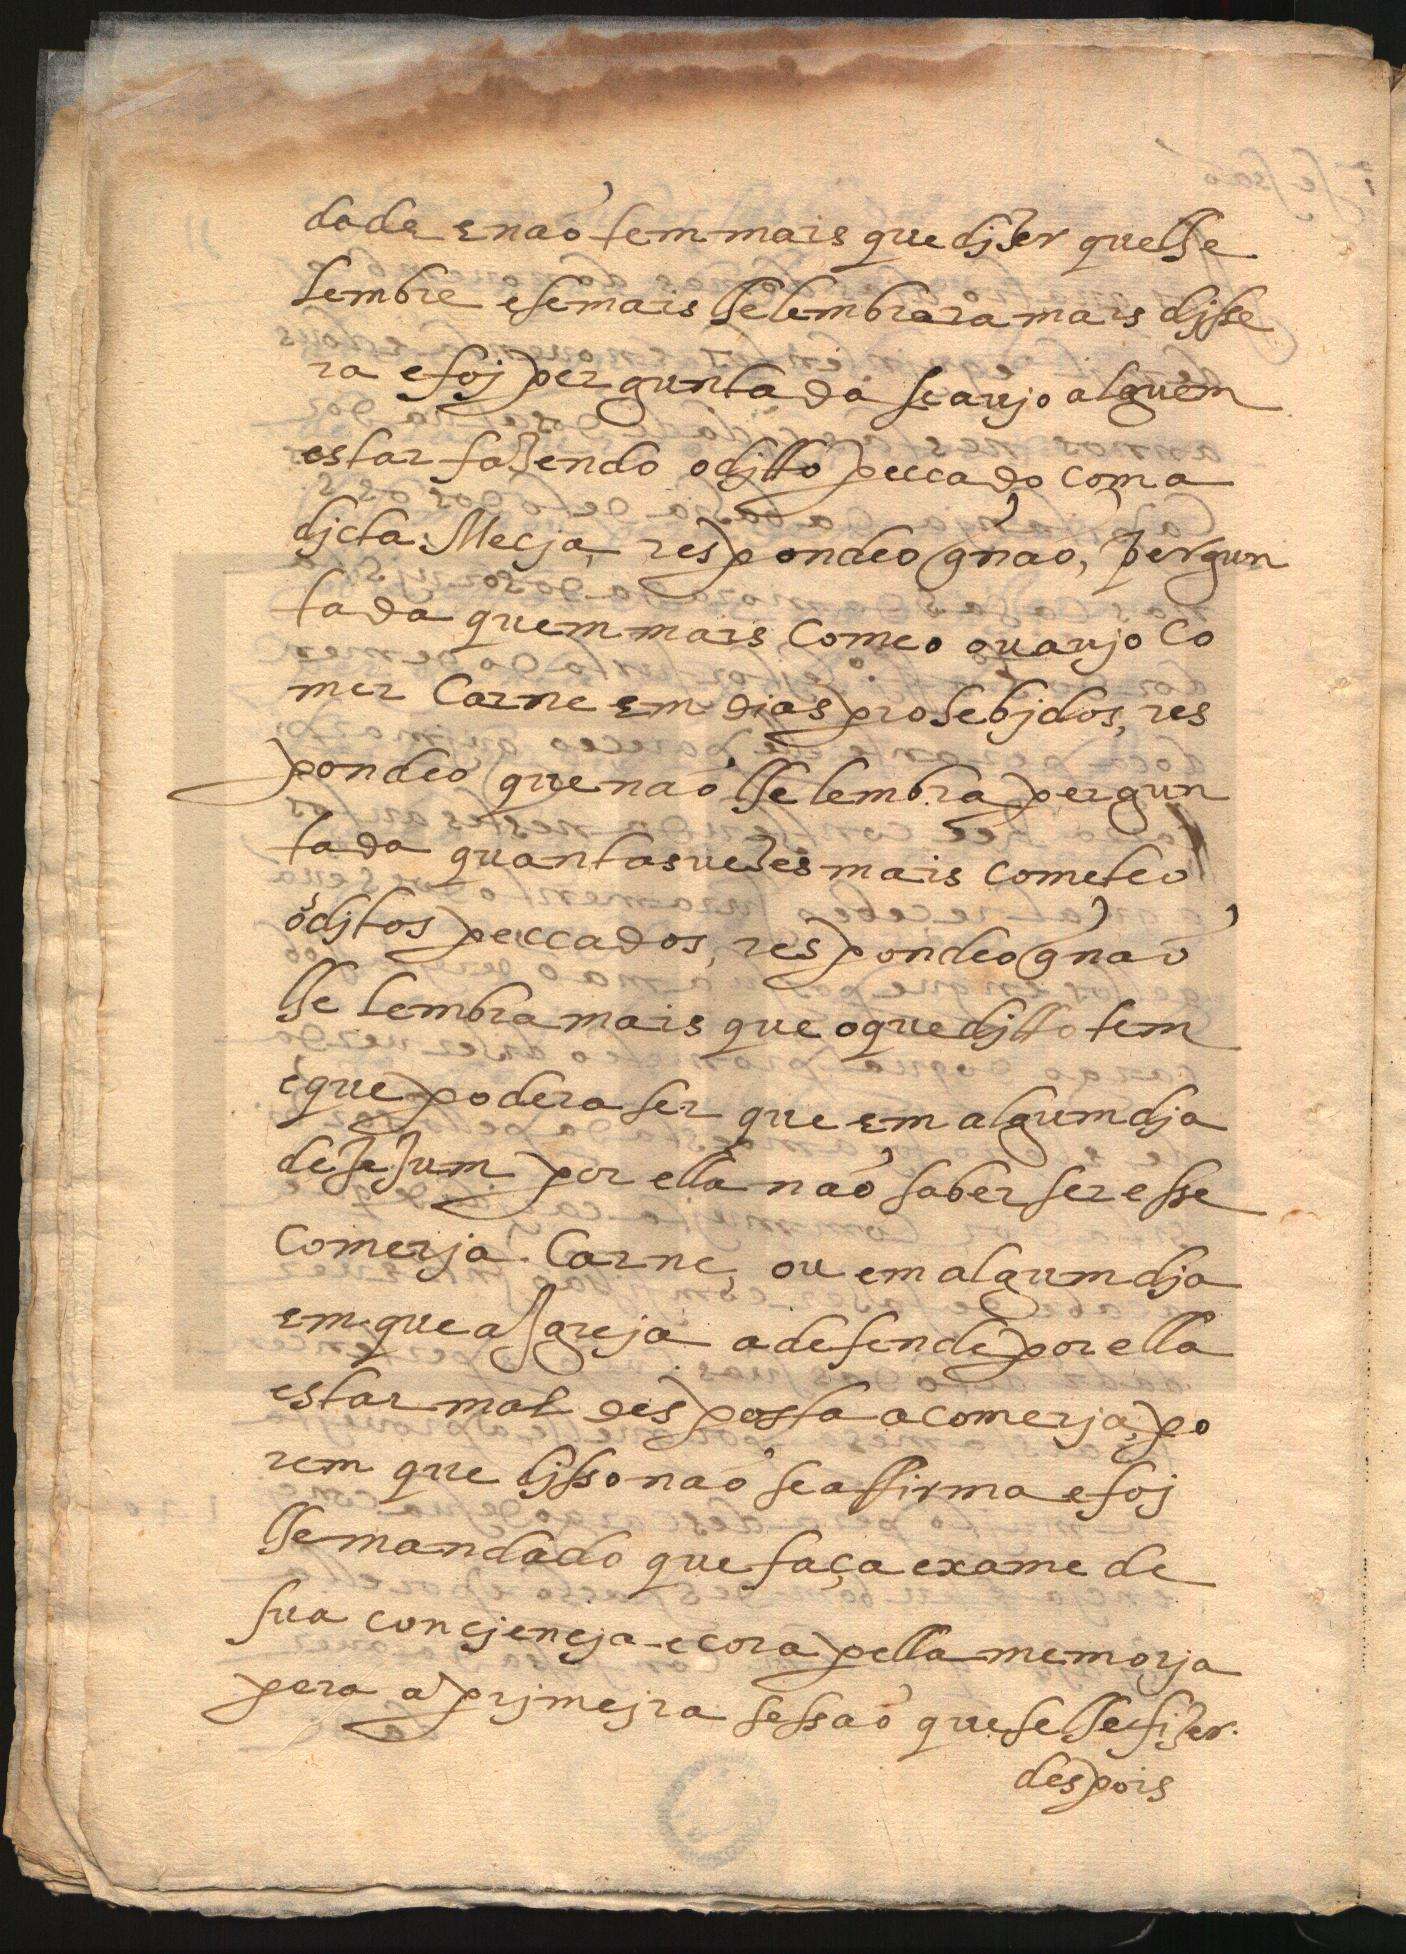 dade e não tem mais que djzer que lhe
lembre e se mais lhe lembrara mais djsse
ra e foj perguntada se avujo alguem
estar fazendo o djtto peccado com a
djcta Mecja, respondeo q̃ não, pergun
tada quem mais comeo ou avujo co
mer carne em dias prohebjdos, res
pondeo que não lhe lembra pergun
tada quantas vezes mais cometeo
os djtos peccados, respondeo q̃ não
lhe lembra mais que o que djtto tem
e que podera ser que em algum dja
de jejum por ella não saber ser esse
comerja carne, ou em algum dja
em que a Jgreja a defende por ella
estar mal desposta a comerja, po
rem que djsso não se affirma e foj
lhe mandado que faça exame de
sua concjencja e cora pella memorja
pera a prjmejra sessão que se lhe fizer.
despois